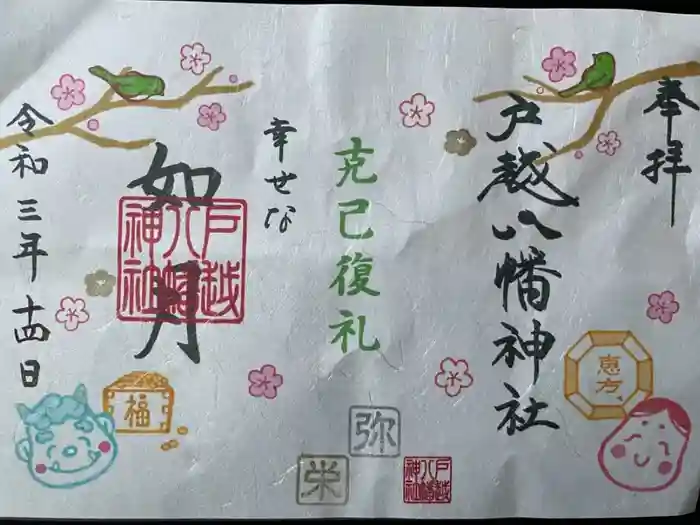 奉拝
戸越八幡神社
恵方
克己復礼
弥
栄
戸越
八幡
神社
幸せな
如月
戸越
八幡
神社
福
令和三年十四日